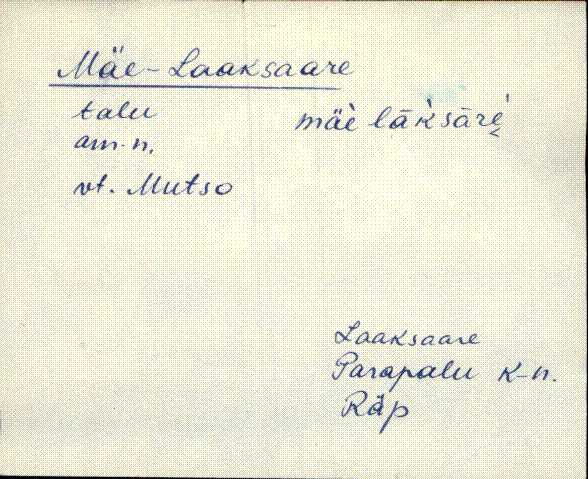 Mäe-Laaksaare
talu mäè lāk̀sāŕe̬
am. n.
vt. Mutso
Laaksaare
Parapalu k-n.
Räp